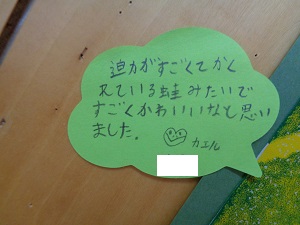 迫力がすごくてかく
れている蛙みたいで
すごくかわいいなと思い
ました。
カエル